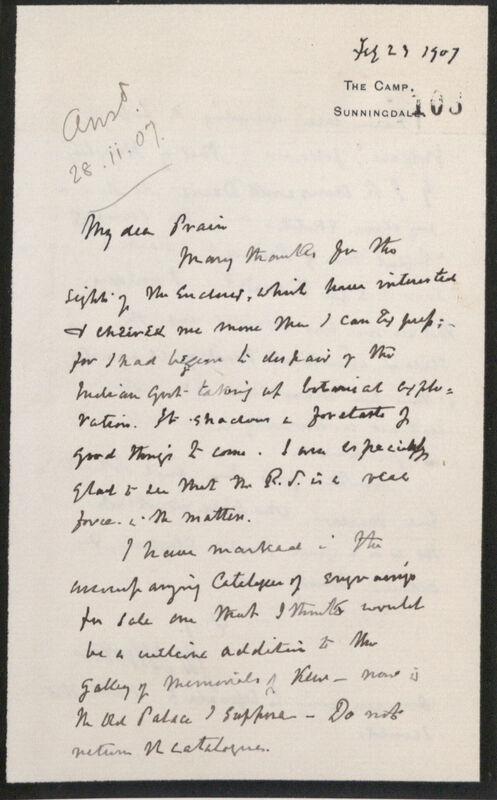 Feb 23 1907
THE CAMP.
SUNNINGDALE
103
Ansd.
28.ii.07.
My dear Prain
Many thanks for the
sight of the enclosed, which have interested
& cheered me more than I can express
for I had begun to despair of the
Indian Govt taking up botanical explo-
ration. It is a foretaste of
good things to come. I am especially
glad to see that the R.S. is a real
force in the matter.
I have marked in the
accompanying Catalogue of engravings
for sale one that I think would
be a welcome addition to the
Gallery of Memorials of Kew — now in
the Old Palace I suppose — Do not
return the catalogue.